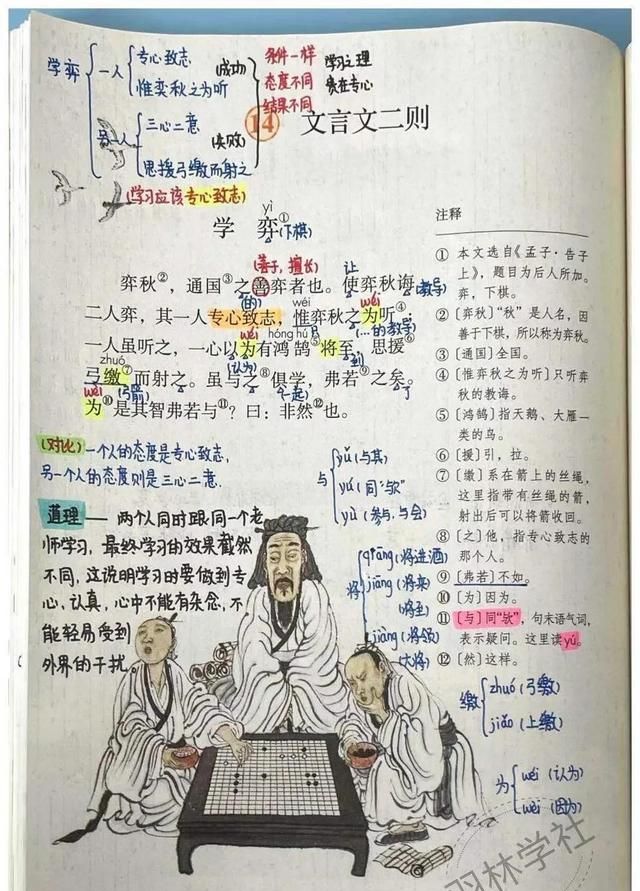 学弈 一人 专心致志 (成功)
惟奕秋之为听
另一人 三心二意 (失败)
思援弓缴而射之
条件一样
态度不同
结果不同
学习之理
贵在专心
(学习应该专心致志)
14 文言文二则
yì
学 弈①(下棋)
(善于,擅长) 让
弈秋②,通国③之善弈者也。使弈秋诲(教导)
(的) wéi wéi
二人弈,其一人专心致志,惟弈秋之为听④
wéi hóng hú 只 (…的教导)
一人虽听之,一心以为有鸿鹄⑤将至,思援⑥
zhuó (认为) 到
弓缴⑦而射之。虽与之⑧俱学,弗若⑨之矣。
wèi (弓箭) (一起) 了
为⑩是其智弗若与⑪?曰:非然⑫也。
(对比)一个人的态度是专心致志,
另一个人的态度则是三心二意.
道理——两个人同时跟同一个老
师学习,最终学习的效果截然
不同,这说明学习的要做到专
心,认真,心中不能有杂念,不
能轻易受到
外界的干扰。
与 yǔ(与其)
yú(同“欤”
yù(参与,与会)
将 qiāng(将进酒)
jiāng(将来)
(将至)
jiàng(将领)
(大将)
注释
① 本文选自《孟子·告子
上》,题目为后人所加。
弈,下棋。
②〔弈秋〕“秋”是人名,因
善于下棋,所以称为弈秋。
③〔通国〕全国。
④〔惟弈秋之为听〕只听弈
秋的教诲。
⑤〔鸿鹄〕指天鹅、大雁一
类的鸟。
⑥〔援〕引,拉。
⑦〔缴〕系在箭上的丝绳,
这里指带有丝绳的箭,
射出后可以将箭收回。
⑧〔之〕他,指专心致志的
那个人。
⑨〔弗若〕不如。
⑩〔为〕因为。
⑪〔与〕同“欤”,句末语气词,
表示疑问。这里读yú。
⑫〔然〕这样。
缴 zhuó(弓缴)
jiǎo(上缴)
为 wéi(认为)
wèi(因为)
羽林学社